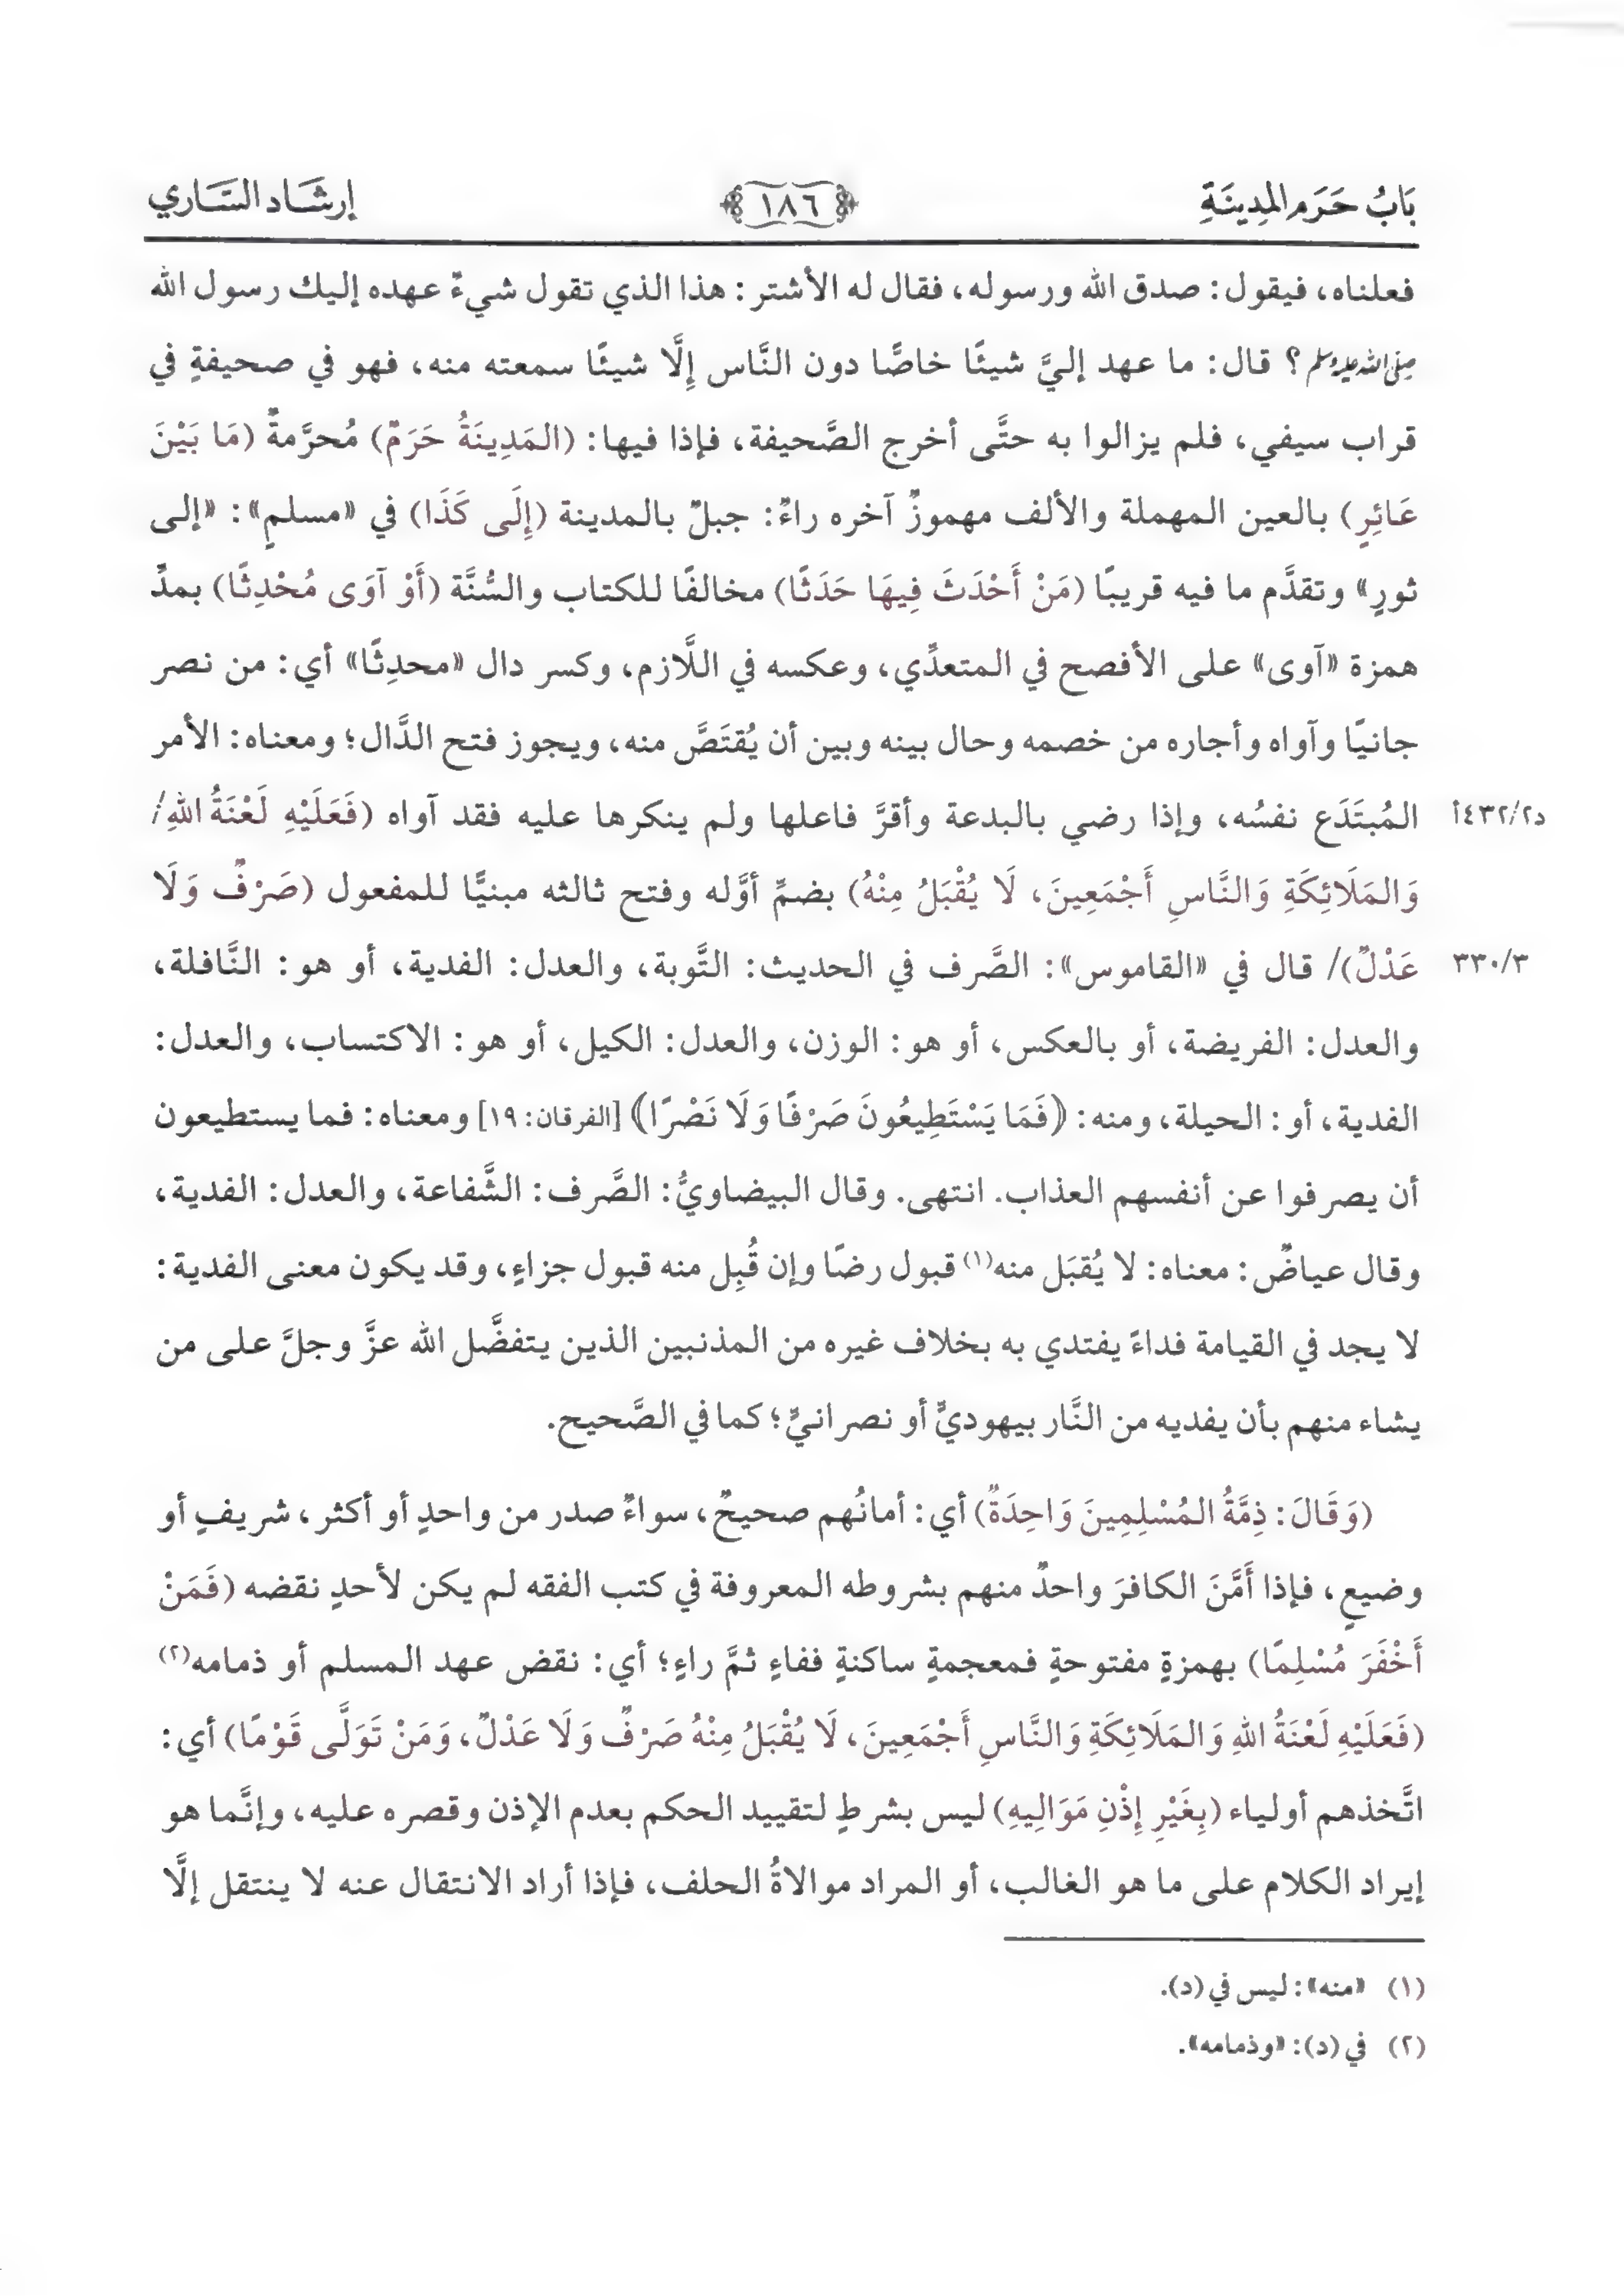 بَابُ حَرَمِ المَدِينَةِ
١٨٦
إرشَاد السَّاري
فعلناه، فيقول: صدق الله ورسوله، فقال له الأشتر: هذا الذي تقول شيءٌ عهده إليك رسول الله
صلى الله عليه وسلم؟ قال: ما عهد إليَّ شيئًا خاصًّا دون النَّاس إِلَّا شيئًا سمعته منه، فهو في صحيفةٍ في
قراب سيفي، فلم يزالوا به حتَّى أخرج الصَّحيفة، فإذا فيها: (المَدِينَةُ حَرَمٌ) مُحرَّمةٌ (مَا بَيْنَ
عَائِرٍ) بالعين المهملة والألف مهموزٌ آخره راءٌ: جبلٌ بالمدينة (إِلَى كَذَا) في «مسلمٍ»: «إلى
ثورٍ» وتقدَّم ما فيه قريبًا (مَنْ أَحْدَثَ فِيهَا حَدَثًا) مخالفًا للكتاب والسُّنَّة (أَوْ آوَى مُحْدِثًا) بمدِّ
همزة «آوى» على الأفصح في المتعدِّي، وعكسه في اللَّازم، وكسر دال «محدِثًا» أي: من نصر
جانيًا وآواه وأجاره من خصمه وحال بينه وبين أن يُقتَصَّ منه، ويجوز فتح الدَّال؛ ومعناه: الأمر
المُبتَدَع نفسُه، وإذا رضي بالبدعة وأقرَّ فاعلها ولم ينكرها عليه فقد آواه (فَعَلَيْهِ لَعْنَةُ اللهِ/ د٤٣٢/٢أ
وَالمَلَائِكَةِ وَالنَّاسِ أَجْمَعِينَ، لَا يُقْبَلُ مِنْهُ) بضمِّ أوَّله وفتح ثالثه مبنيًّا للمفعول (صَرْفٌ وَلَا
عَدْلٌ)/ قال في «القاموس»: الصَّرف في الحديث: التَّوبة، والعدل: الفدية، أو هو: النَّافلة، ٣٣٠/٣
والعدل: الفريضة، أو بالعكس، أو هو: الوزن، والعدل: الكيل، أو هو: الاكتساب، والعدل:
الفدية، أو: الحيلة، ومنه: ﴿فَمَا يَسْتَطِيعُونَ صَرْفًا وَلَا نَصْرًا﴾ [الفرقان: ١٩] ومعناه: فما يستطيعون
أن يصرفوا عن أنفسهم العذاب. انتهى. وقال البيضاويُّ: الصَّرف: الشَّفاعة، والعدل: الفدية،
وقال عياضٌ: معناه: لا يُقبَل منه(١) قبول رضًا وإن قُبِل منه قبول جزاءٍ، وقد يكون معنى الفدية:
لا يجد في القيامة فداءً يفتدي به بخلاف غيره من المذنبين الذين يتفضَّل الله عزَّ وجلَّ على من
يشاء منهم بأن يفديه من النَّار بيهوديٍّ أو نصرانيٍّ؛ كما في الصَّحيح.
(وَقَالَ: ذِمَّةُ المُسْلِمِينَ وَاحِدَةٌ) أي: أمانُهم صحيحٌ، سواءٌ صدر من واحدٍ أو أكثر، شريفٍ أو
وضيعٍ، فإذا أَمَّنَ الكافرَ واحدٌ منهم بشروطه المعروفة في كتب الفقه لم يكن لأحدٍ نقضه (فَمَنْ
أَخْفَرَ مُسْلِمًا) بهمزةٍ مفتوحةٍ فمعجمةٍ ساكنةٍ ففاءٍ ثمَّ راءٍ؛ أي: نقض عهد المسلم أو ذمامه(٢)
(فَعَلَيْهِ لَعْنَةُ اللهِ وَالمَلَائِكَةِ وَالنَّاسِ أَجْمَعِينَ، لَا يُقْبَلُ مِنْهُ صَرْفٌ وَلَا عَدْلٌ، وَمَنْ تَوَلَّى قَوْمًا) أي:
اتَّخذهم أولياء (بِغَيْرِ إِذْنِ مَوَالِيهِ) ليس بشرطٍ لتقييد الحكم بعدم الإذن وقصره عليه، وإنَّما هو
إيراد الكلام على ما هو الغالب، أو المراد موالاةُ الحلف، فإذا أراد الانتقال عنه لا ينتقل إلَّا
(١) «منه»: ليس في (د).
(٢) في (د): «وذمامه».